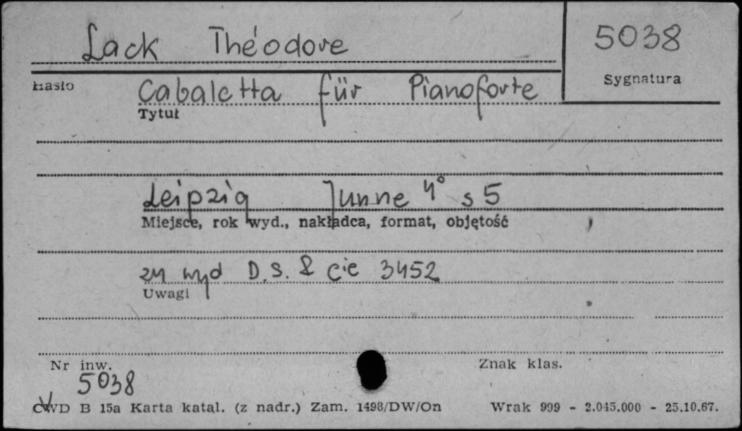 Lack Théodore
5038
Hasło
Sygnatura
Cabaletta für Pianoforte
Tytuł
Leipzig Junne 4° s 5
Miejsce, rok wyd., nakładca, format, objętość
zn wyd D.S. & Cie 3452
Uwagi
Nr inw.
5038
Znak klas.
CWD B 15a Karta katal. (z nadr.) Zam. 1498/DW/On Wrak 999 - 2.045.000 - 25.10.67.